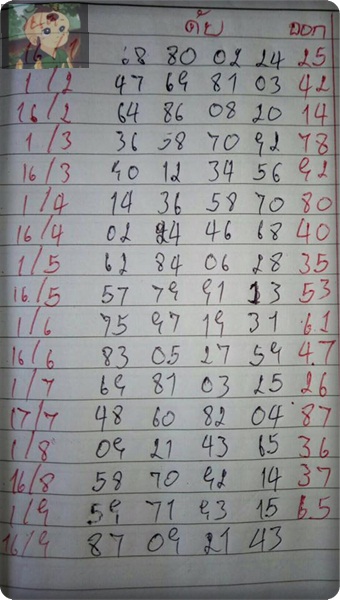 ดับ ออก
68 80 02 24 25
1/2 47 69 81 03 42
16/2 64 86 08 20 14
1/3 36 58 70 92 78
16/3 90 12 34 56 92
1/4 14 36 58 70 80
16/4 02 24 46 68 40
1/5 62 84 06 28 35
16/5 57 79 91 13 53
1/6 75 97 19 31 61
16/6 83 05 27 59 47
1/7 69 81 03 25 26
17/7 48 60 82 04 87
1/8 09 21 43 65 36
16/8 58 70 92 14 37
1/9 59 71 93 15 65
16/9 87 09 21 43